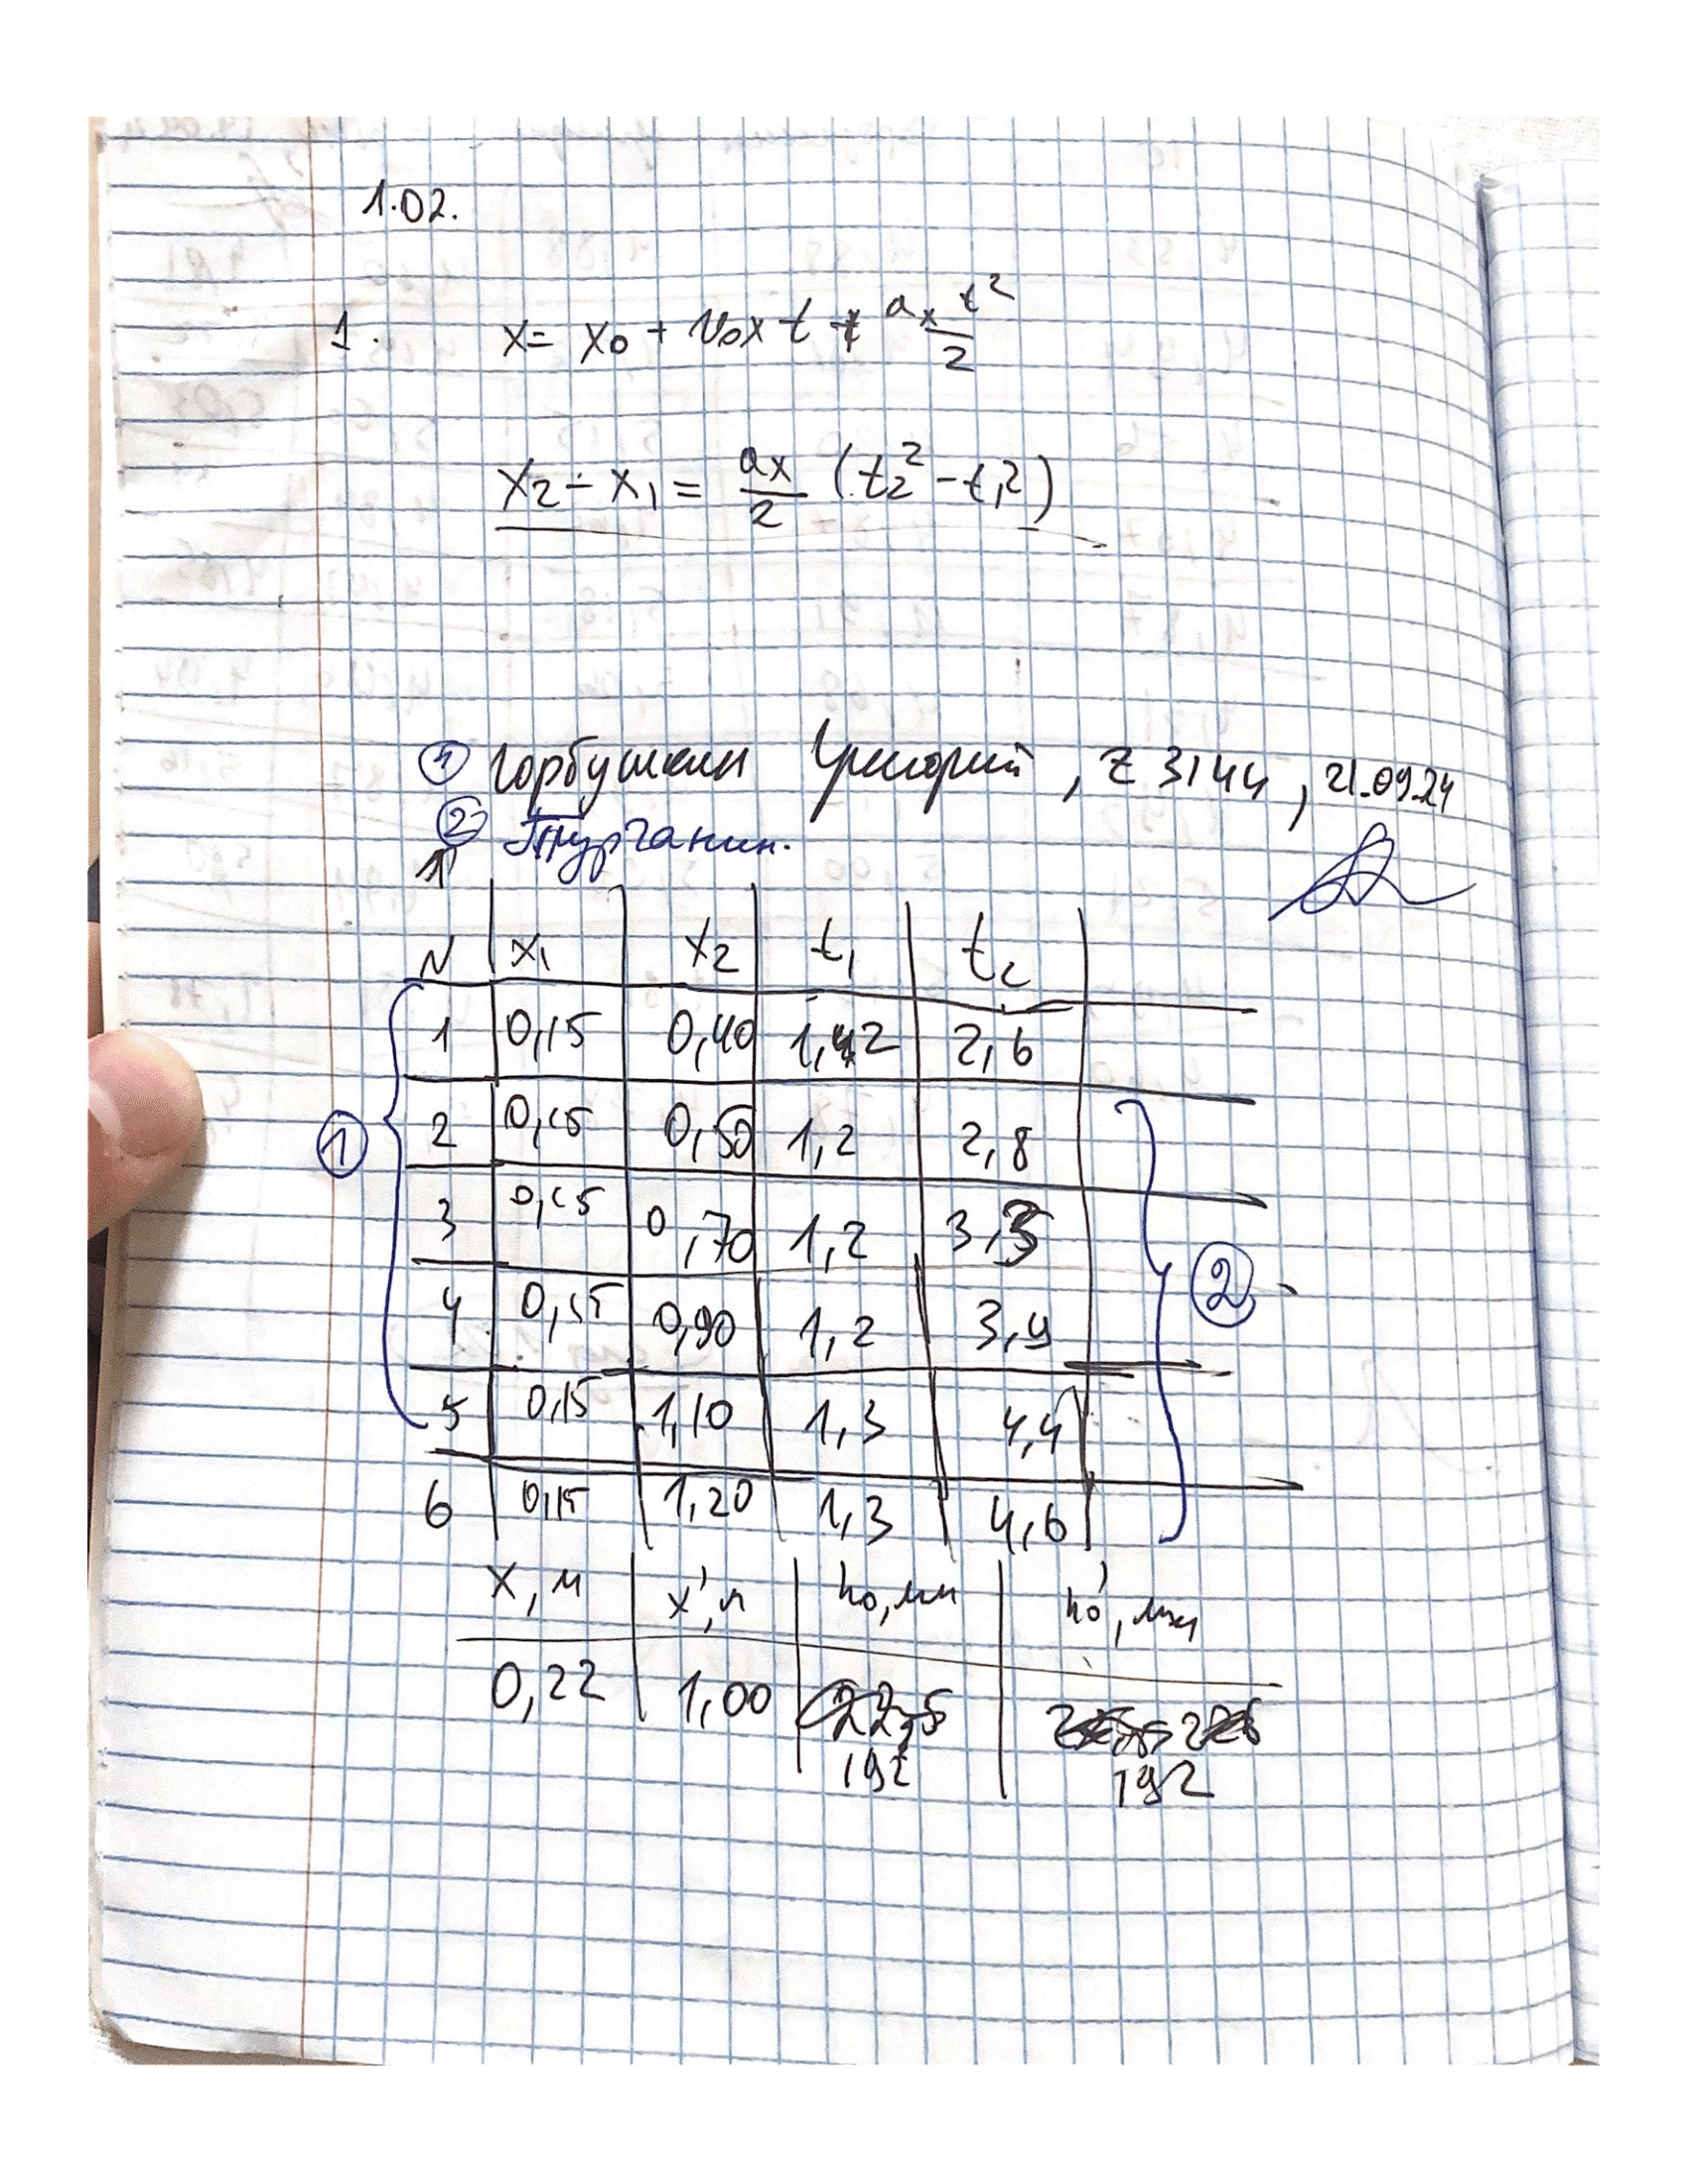 1.02.
1. x = x₀ + v₀x t + aₓt²/2
x₂ - x₁ = aₓ/2 (t₂² - t₁²)
① Горбушин Григорий, Z 3144, 21.09.24
②
1
N x₁ x₂ t₁ t₂
1 0,15 0,40 1,2 2,6
2 0,15 0,50 1,2 2,8
3 0,15 0,70 1,2
4 0,15 0,90 1,2 3,9
5 0,15 1,10 1,3 4,4
6 0,15 1,20 1,3 4,6
① ②
x, м x', м h₀, мм h₀', мм
0,22 1,00 192 192